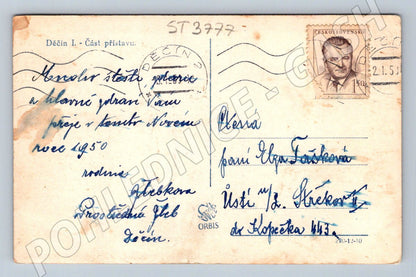 ST 3777-
Děčín I. - Část přístavu.
DĚČÍN 2
ČESKOSLOVENSKO
1 Kčs
2.1.5
Mnoho štěstí zdraví
a hlavně zdraví Vám
přeje v tomto Novém
roce 1950
rodina
Hlebkova
Prostřední Žleb
Děčín.
Ctěná
paní Elza Tašková
Ústí n/L. Střekov II
dr Kopečka 443.
ORBIS
POHLEDNICE - CECH